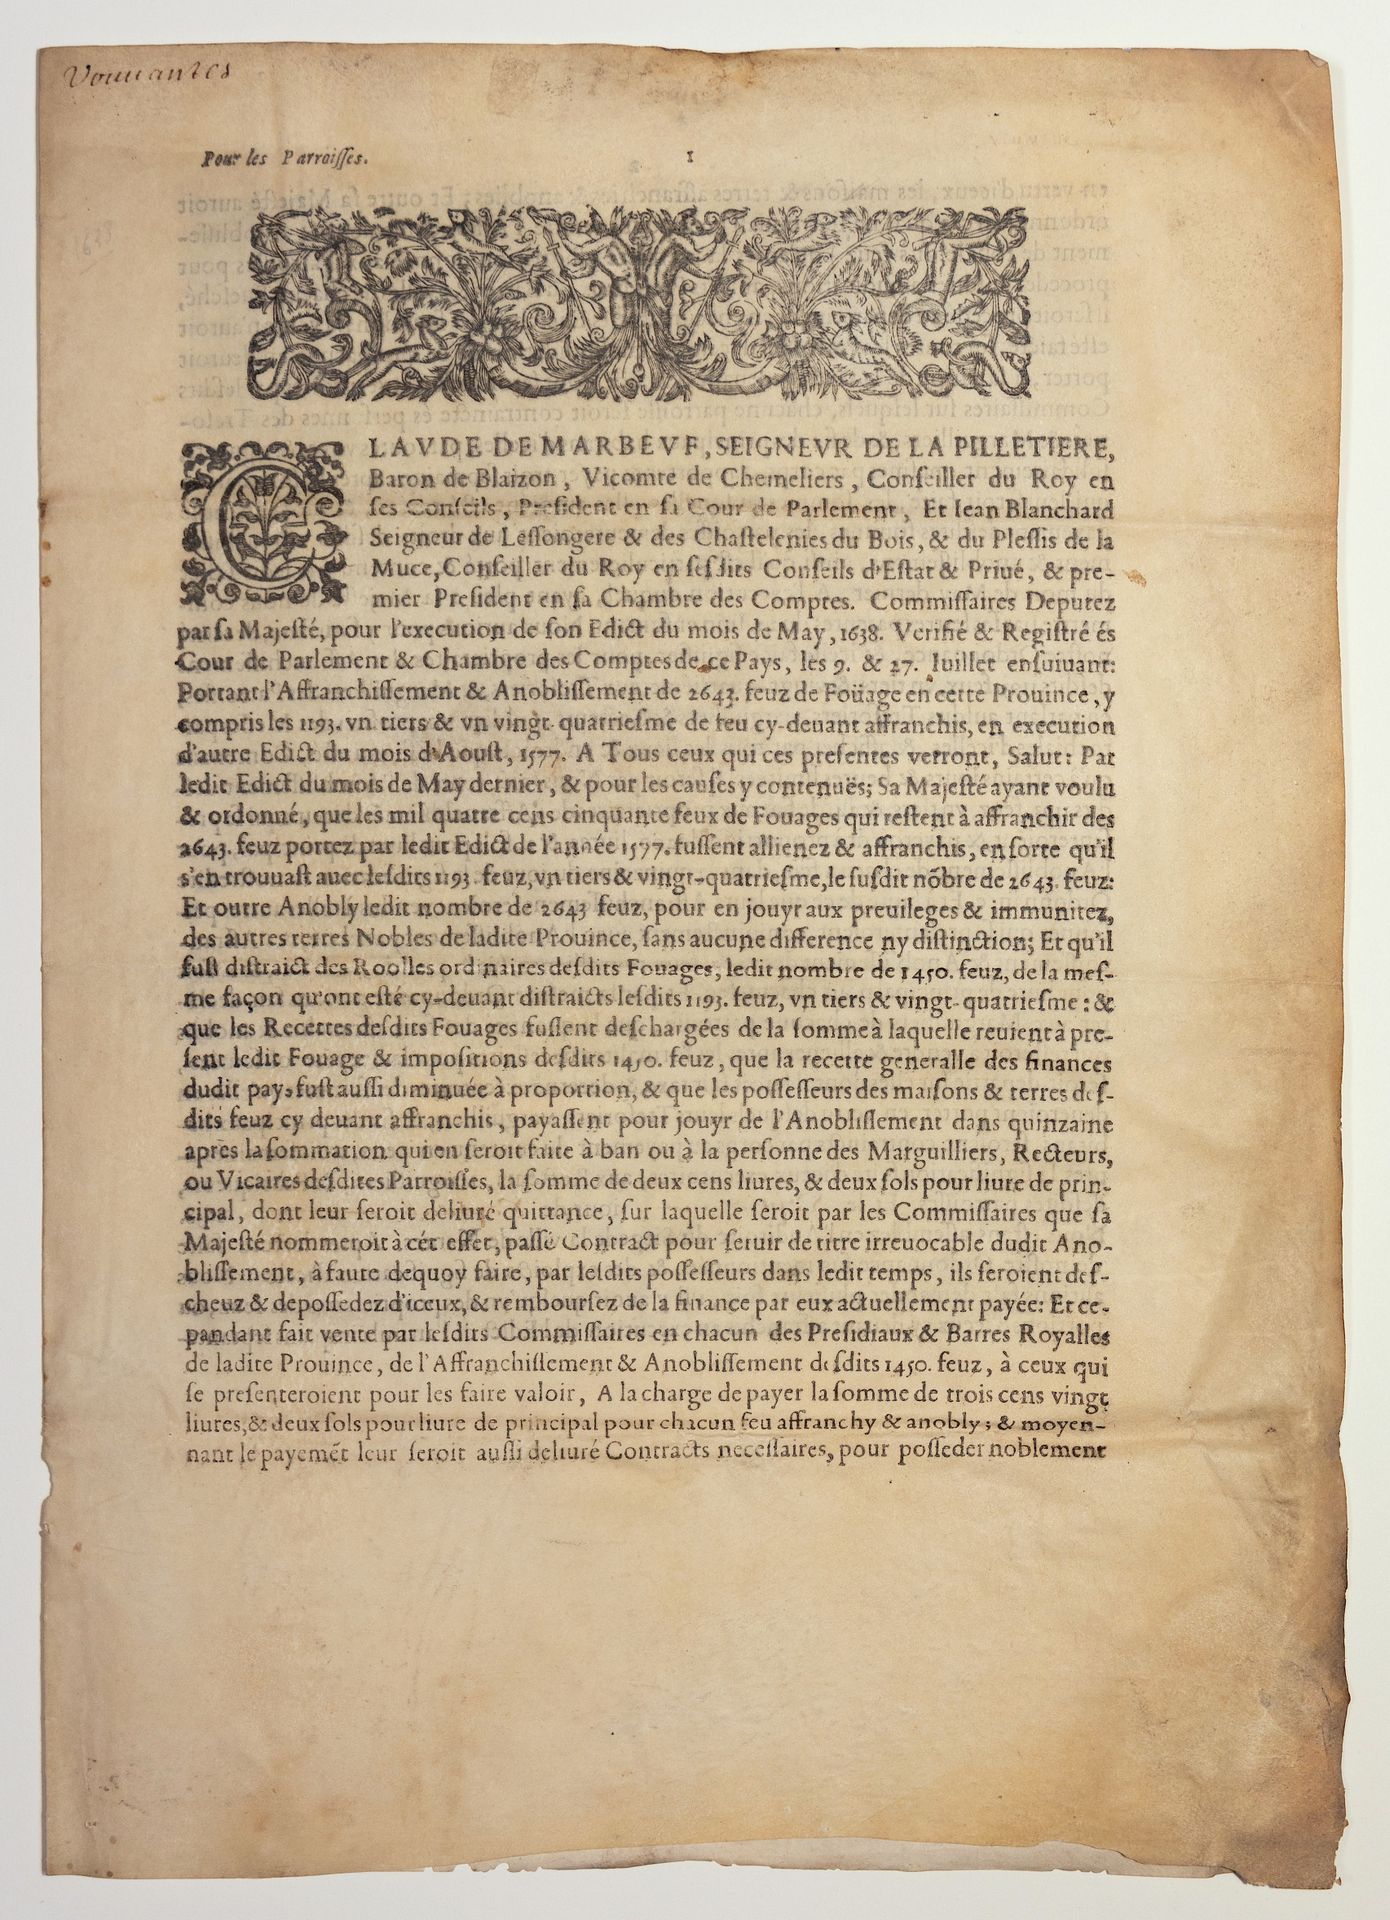 Vouuantes
Pour les Parroisses. 1
CLAVDE DE MARBEVF, SEIGNEVR DE LA PILLETIERE,
Baron de Blaizon, Vicomte de Chemeliers, Conseiller du Roy en
ses Conseils, President en sa Cour de Parlement, Et Iean Blanchard
Seigneur de Lessongere & des Chastelenies du Bois, & du Plessis de la
Muce, Conseiller du Roy en sesdits Conseils d'Estat & Priué, & pre-
mier President en sa Chambre des Comptes. Commissaires Deputez
par sa Majesté, pour l'execution de son Edict du mois de May, 1638. Verifié & Registré és
Cour de Parlement & Chambre des Comptes de ce Pays, les 9. & 27. Iuillet ensuiuant:
Portant l'Affranchissement & Anoblissement de 2643. feuz de Foüage en cette Prouince, y
compris les 1193. vn tiers & vn vingt-quatriesme de feu cy-deuant affranchis, en execution
d'autre Edict du mois d'Aoust, 1577. A Tous ceux qui ces presentes verront, Salut: Par
ledit Edict du mois de May dernier, & pour les causes y contenuës; Sa Majesté ayant voulu
& ordonné, que les mil quatre cens cinquante feux de Fouages qui restent à affranchir des
2643. feuz portez par ledit Edict de l'année 1577. fussent allienez & affranchis, en sorte qu'il
s'en trouuast auec lesdits 1193. feuz, vn tiers & vingt-quatriesme, le susdit nõbre de 2643. feuz:
Et outre Anobly ledit nombre de 2643 feuz, pour en jouyr aux preuileges & immunitez,
des autres terres Nobles de ladite Prouince, sans aucune difference ny distinction; Et qu'il
fust distraict des Roolles ordinaires desdits Fouages, ledit nombre de 1450. feuz, de la mes-
me façon qu'ont esté cy-deuant distraicts lesdits 1193. feuz, vn tiers & vingt-quatriesme: &
que les Recettes desdits Fouages fussent deschargées de la somme à laquelle reuient à pre-
sent ledit Fouage & impositions desdits 1450. feuz, que la recette generalle des finances
dudit pays fust aussi diminuée à proportion, & que les possesseurs des maisons & terres des-
dits feuz cy deuant affranchis, payassent pour jouyr de l'Anoblissement dans quinzaine
apres la sommation qui en seroit faite à ban ou à la personne des Marguilliers, Recteurs,
ou Vicaires desdites Parroisses, la somme de deux cens liures, & deux sols pour liure de prin-
cipal, dont leur seroit deliuré quittance, sur laquelle seroit par les Commissaires que sa
Majesté nommeroit à cét effet, passé Contract pour seruir de titre irreuocable dudit Ano-
blissement, à faute dequoy faire, par lesdits possesseurs dans ledit temps, ils seroient des-
cheuz & depossedez d'iceux, & remboursez de la finance par eux actuellement payée: Et ce-
pandant fait vente par lesdits Commissaires en chacun des Presidiaux & Barres Royalles
de ladite Prouince, de l'Affranchissement & Anoblissement desdits 1450. feuz, à ceux qui
se presenteroient pour les faire valoir, A la charge de payer la somme de trois cens vingt
liures, & deux sols pour liure de principal pour chacun feu affranchy & anobly; & moyen-
nant le payemẽt leur seroit aussi deliuré Contracts necessaires, pour posseder noblement